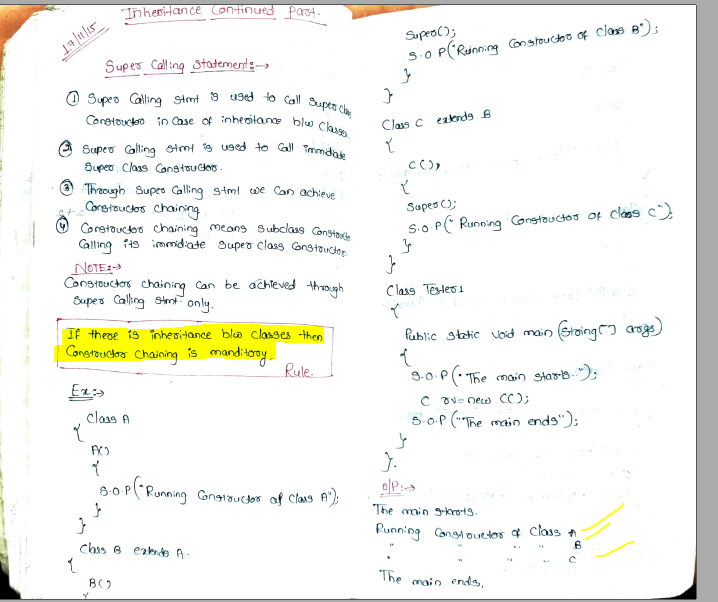 Inheritance Continued Part.
17/11/15
Super Calling Statement:→
① Super Calling stmt is used to call Super class
Constructor in case of inheritance b/w Classes.
② Super Calling stmt is used to Call immidiate
Super Class Constructor.
③ Through Super Calling stmt we Can achieve
Constructor chaining
④ Constructor chaining means Subclass Constructor
Calling its immidiate Super class Constructor.
NOTE:→
Constructor chaining can be achieved through
Super Calling stmt only.
If there is inheritance b/w Classes then
Constructor Chaining is manditory.
Rule.
Ex:→
Class A
{
A()
{
S.O.P("Running Constructor of Class A");
}
}
Class B extends A.
{
B()
{
Super();
S.O.P("Running Constructor of Class B");
}
}
Class C extends B
{
C();
{
Super();
S.O.P("Running Constructor of Class C");
}
}
Class Tester1
{
Public static void main (String[] args)
{
S.O.P("The main starts..");
C rv=new CC);
S.O.P("The main ends");
}
}.
O/P:→
The main starts.
Running Constructor of Class A
" " " " B
" " " " C
The main ends.